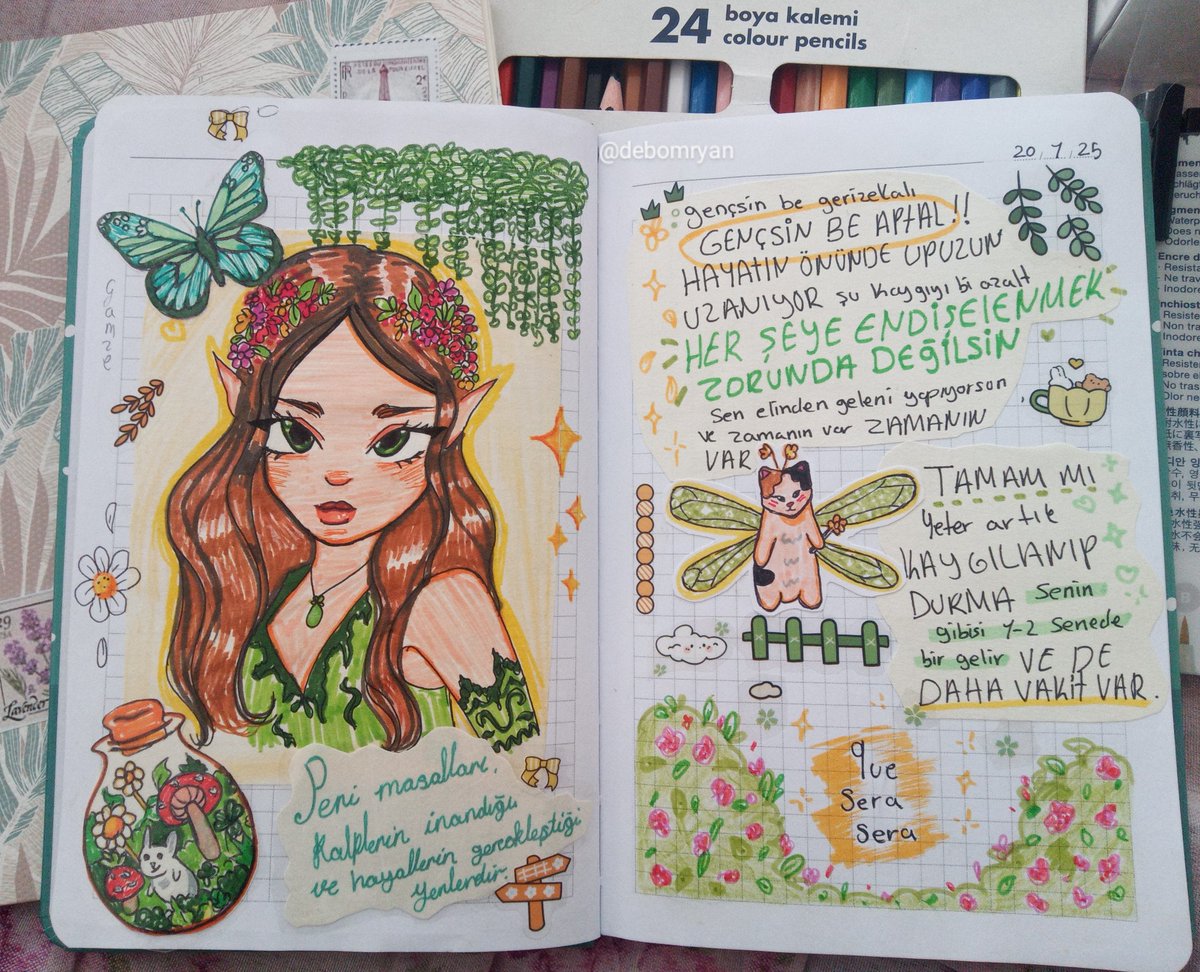 24 boya kalemi
colour pencils
@debomryan
20,7,25
Gamze
gençsin be gerizekalı
GENÇSİN BE APTAL!!
HAYATIN ÖNÜNDE UPUZUN
UZANIYOR şu kaygıyı bi azalt
HER ŞEYE ENDİŞELENMEK
ZORUNDA DEĞİLSİN
Sen elinden geleni yapıyorsun
ve zamanın var ZAMANIN
VAR
TAMAM MI
Yeter artık
KAYGILANIP
DURMA Senin
gibisi 1-2 Senede
bir gelir VE DE
DAHA VAKİT VAR.
que
sera
sera
Peri masalları,
kalplerin inandığı
ve hayallerin gerçekleştiği
yerlerdir.
Lavender
29
Encre d